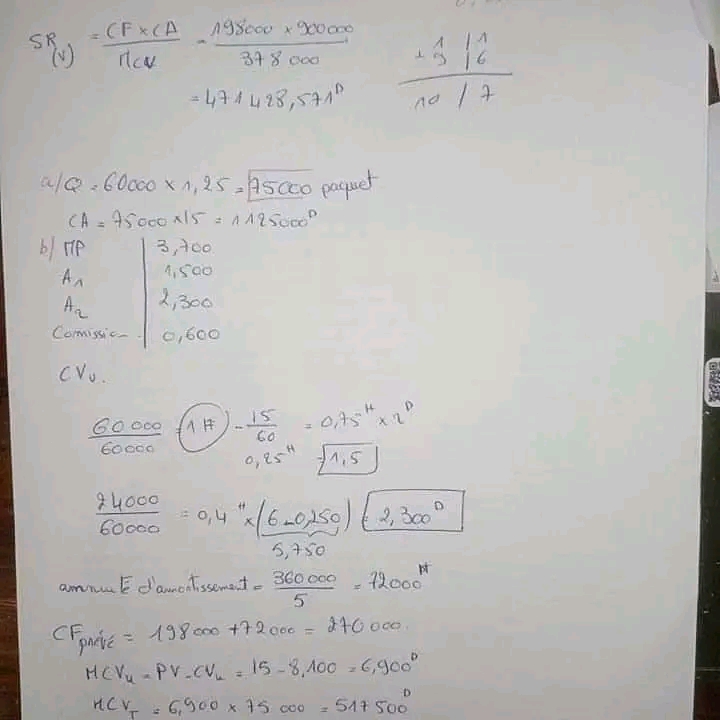 SR(V) = CF x CA / MCV = 198000 x 900000 / 378000
= 471428,571ᴰ
1 | 1
+ 9 | 6
10 / 7
a/ Q = 60000 x 1,25 = 75000 paquet
CA = 75000 x 15 = 1125000ᴰ
b/ MP | 3,700
A1 | 1,500
A2 | 2,300
Comission | 0,600
CVu.
60000 / 60000 = 1H - 15/60 = 0,75ᴴ x 2ᴰ
0,25ᴴ = 1,5
24000 / 60000 = 0,4ᴴ x (6-0,250) = 2,300ᴰ
5,750
annuité d'amortissement = 360000 / 5 = 72000
CF prév = 198000 + 72000 = 270000.
MCVu = PV - CVu = 15 - 8,100 = 6,900ᴰ
MCVT = 6,900 x 75 000 = 517500ᴰ